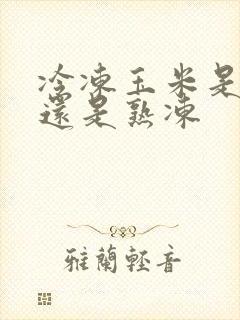 冷凍玉米是
還是熟凍
雅蘭輕音